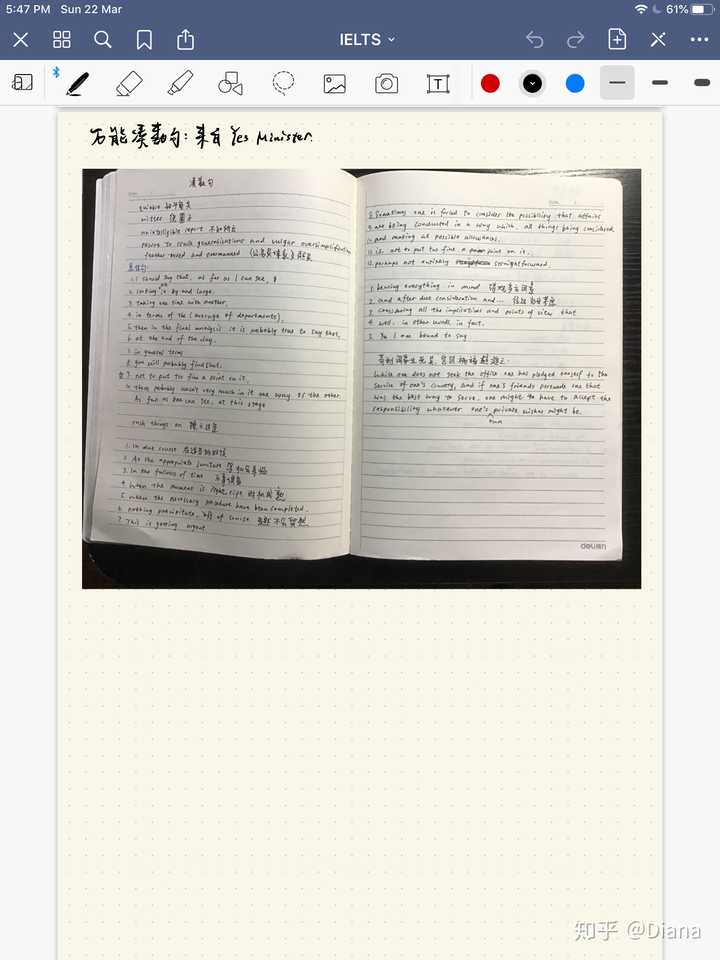 5:47 PM Sun 22 Mar
61%
IELTS
T
万能凑数句: 来自 Yes Minister.
凑数句
quixotic
unintelligible report 不知所云
resort to crush generalisations and vulgar oversimplification
feather bedded and overmanned
1. I should say that, as far as I can see,
2. looking by and large,
3. taking one time with another,
4. in terms of the (average of departments),
5. then in the final analysis it is probably true to say that,
6. at the end of the day,
7. in general terms
8. you will probably find that.
9. not to put too fine a point on it,
10. there probably wasn't very much in it one way or the other
As far as one can see, at this stage
rush things on
1. In due course 在适当的时候
2. At the appropriate juncture
3. In the fullness of time
4. When the moment is ripe 时机成熟
5. when the necessary procedure have been completed.
6. nothing precipitate, of course
7. This is getting urgent
8. Sometimes one is forced to consider the possibility that affairs
9. are being conducted in a way which, all things being considered,
10. and making all possible allowances,
11. is not to put too fine a point on it,
12. perhaps not entirely straightforward.
1. bearing everything in mind
2. and after due consideration and...
3. considering all the implications and points of view that
4. well, in other words, in fact,
5. I am bound to say
While one does not seek the office one has pledged oneself to the
service of one's country, and if one's friends persuade one that
was the best way to serve, one might to have to accept the
responsibility whatever one's private wishes might be.
own
deli得力
知乎 @Diana